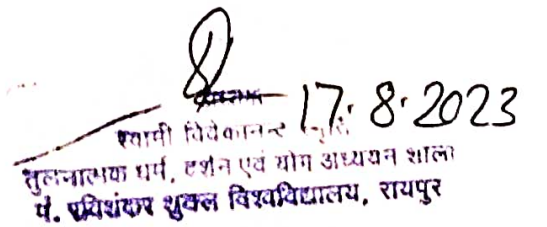 17.8.2023
स्वामी विवेकानन्द स्मृति
तुलनात्मक धर्म, दर्शन एवं योग अध्ययन शाला
पं. रविशंकर शुक्ल विश्वविद्यालय, रायपुर